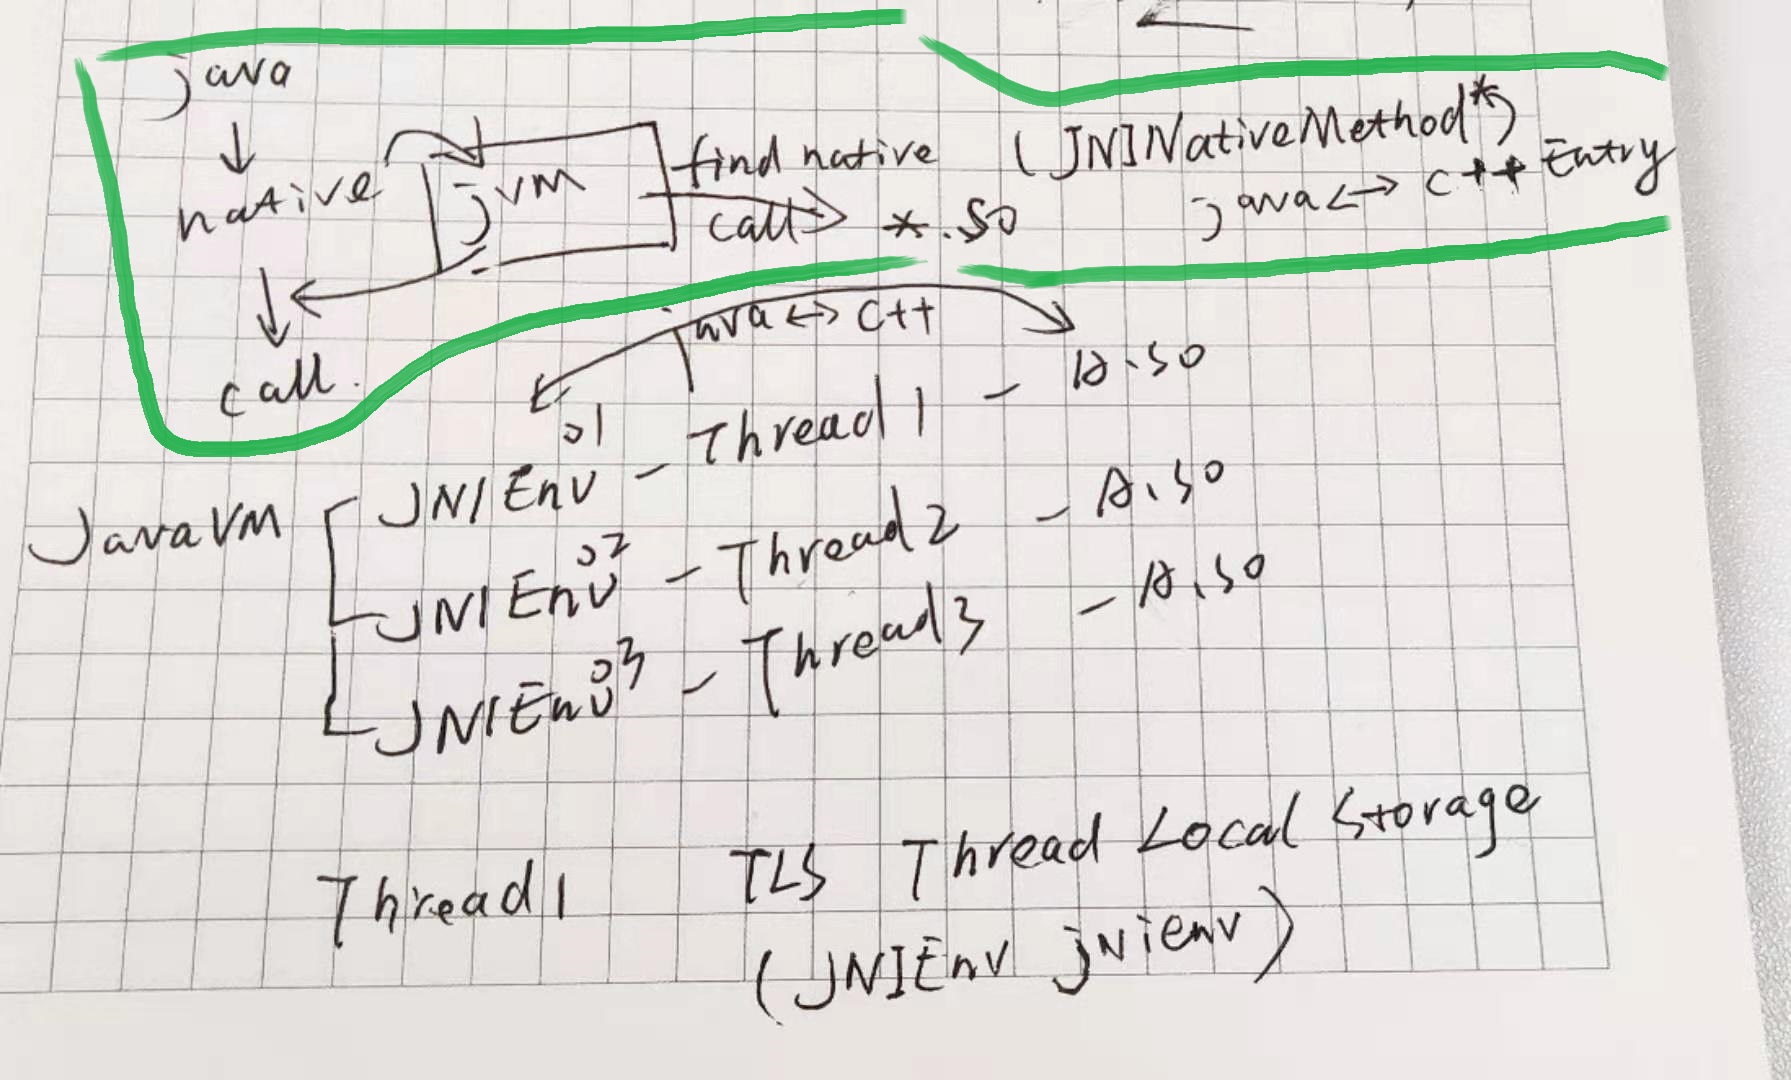 java
native
jvm
find native
call
*.so
call.
(JNINativeMethod*)
java<->C++ Entry
java<->C++
JavaVM
JNIEnv01 - Thread1 - A.so
JNIEnv02 - Thread2 - A.so
JNIEnv03 - Thread3 - A.so
Thread1
TLS Thread Local Storage
(JNIEnv jnienv)